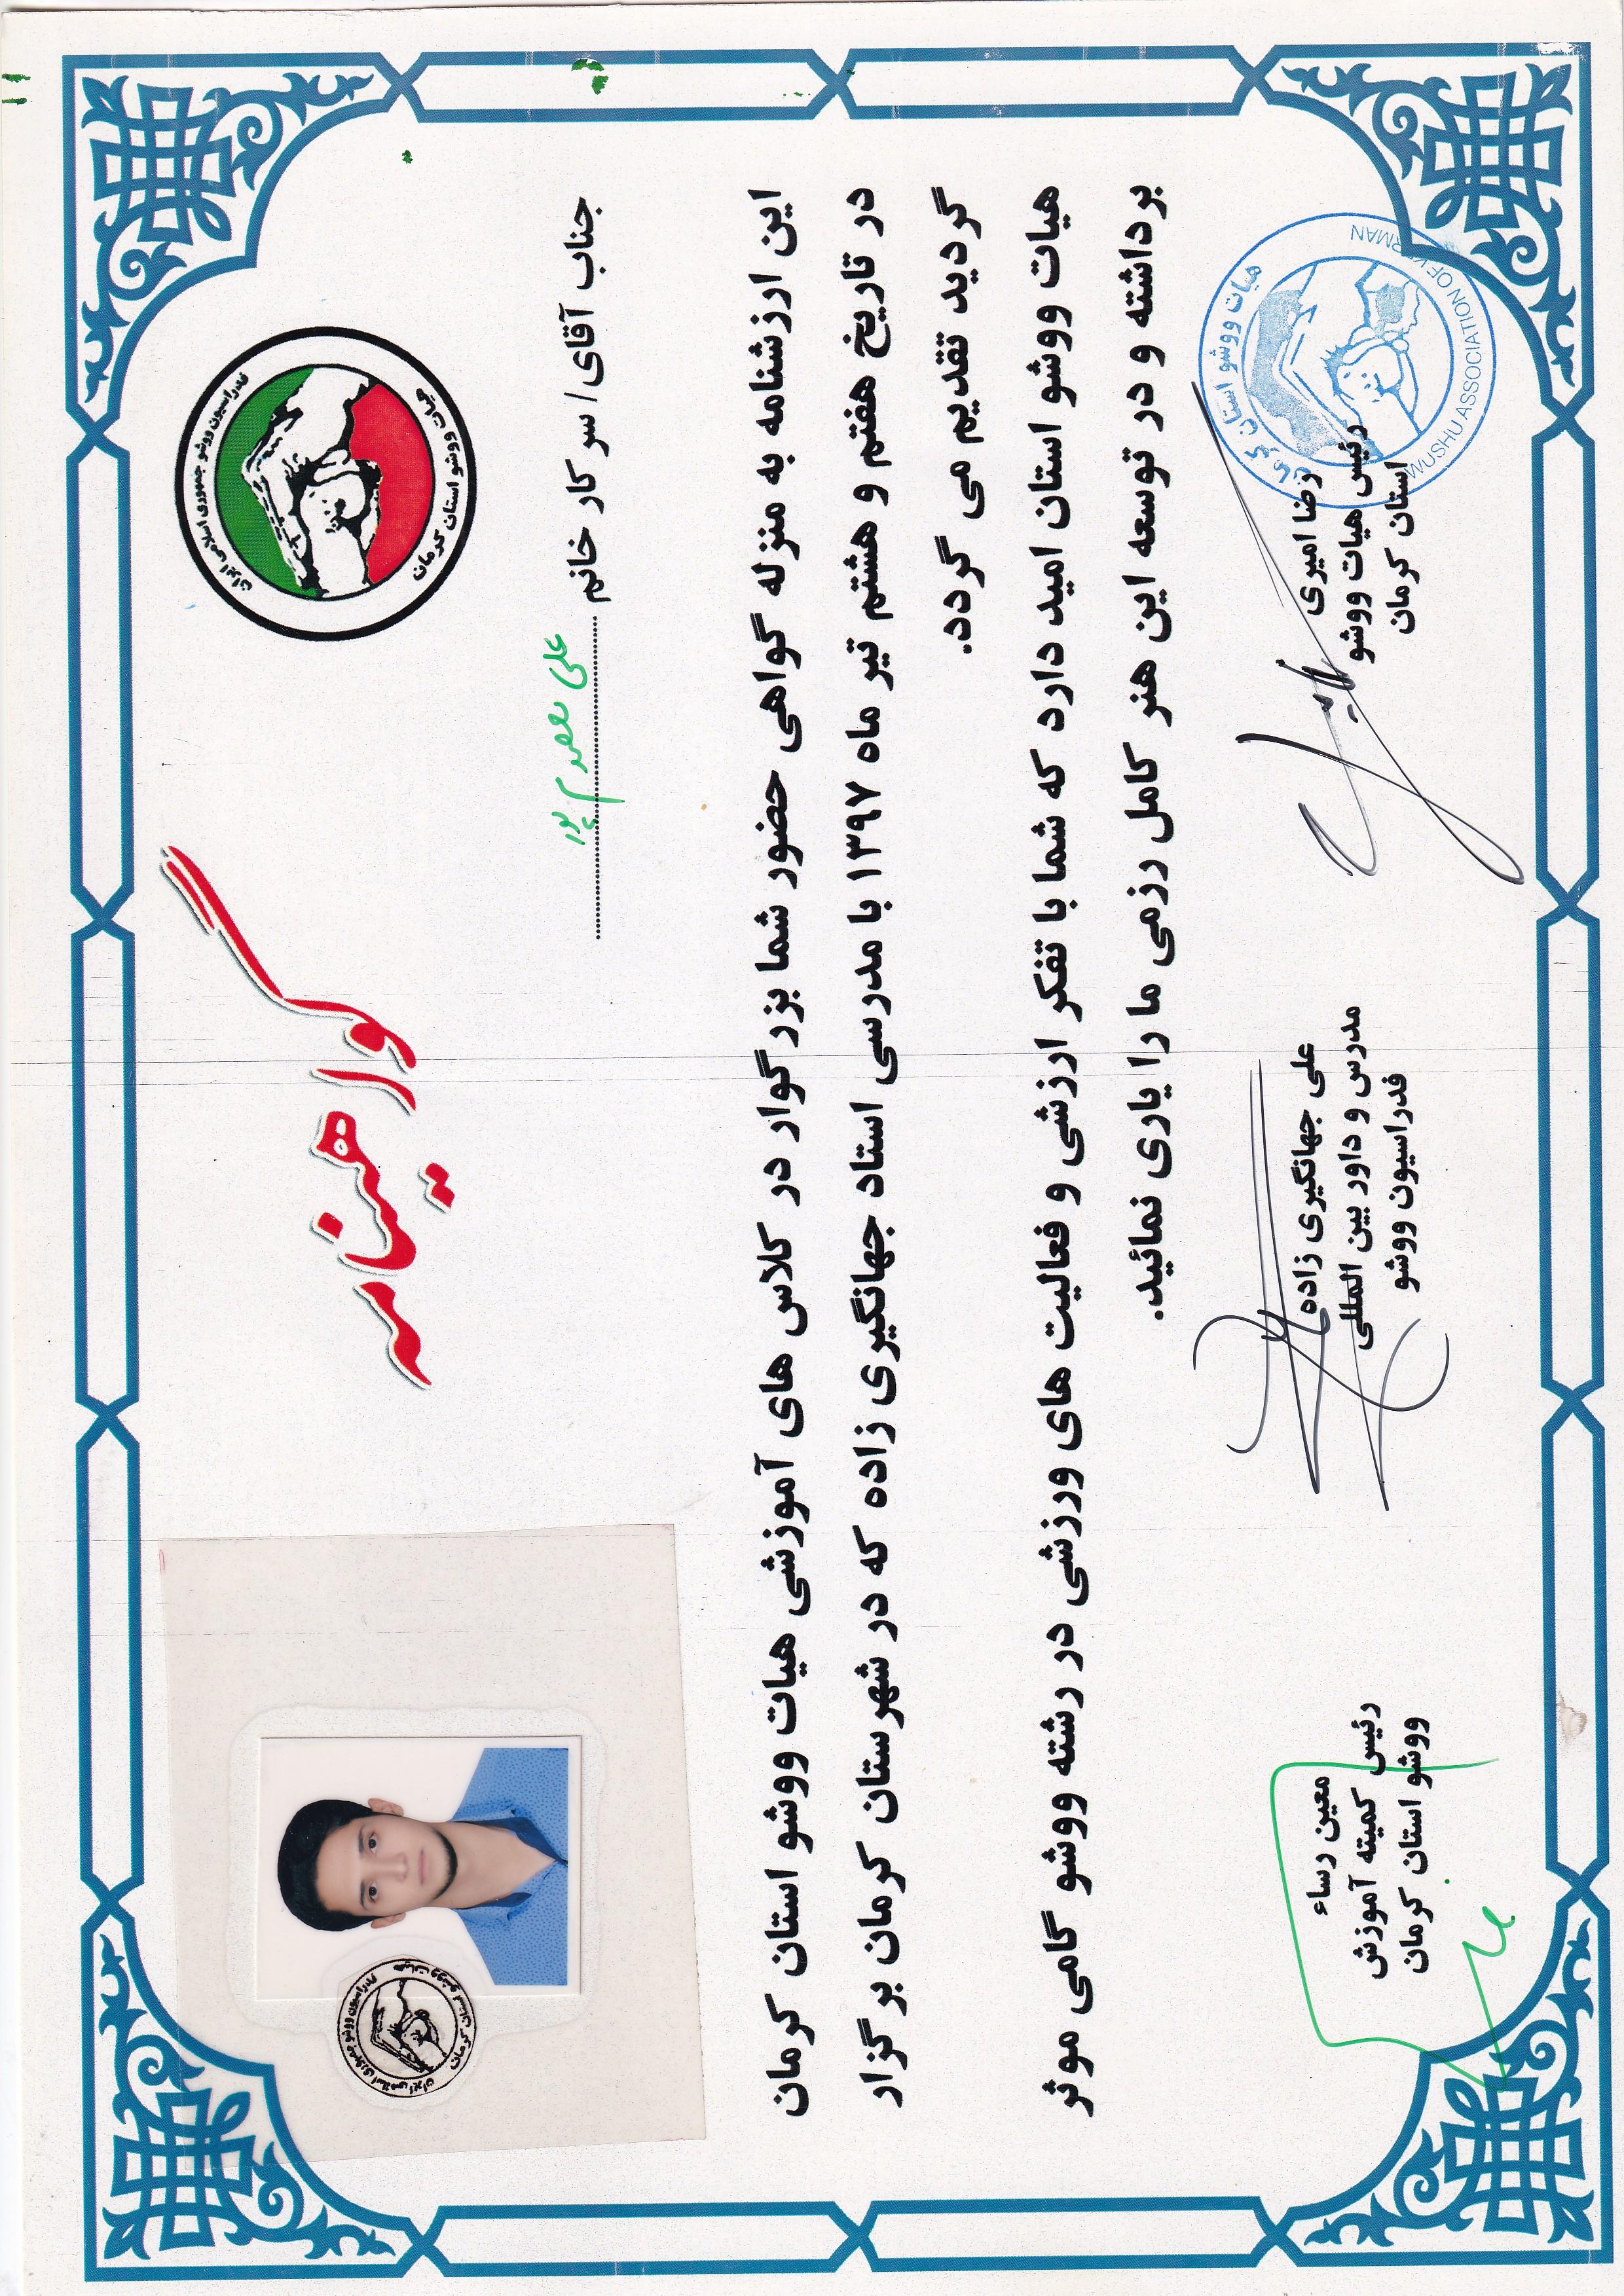 فدراسیون ووشو جمهوری اسلامی ایران
هیات ووشو استان کرمان
گواهینامه
فدراسیون ووشو جمهوری اسلامی ایران
هیات ووشو استان کرمان
جناب آقای/سرکار خانم علی
این ارزشنامه به منزله گواهی حضور شما بزرگوار در کلاس های آموزشی هیات ووشو استان کرمان
در تاریخ هفتم و هشتم تیر ماه ۱۳۹۷ با مدرسی استاد جهانگیری زاده که در شهرستان کرمان برگزار
گردید تقدیم می گردد.
هیات ووشو استان امید دارد که شما با تفکر ارزشی و فعالیت های ورزشی در رشته ووشو گامی موثر
برداشته و در توسعه این هنر کامل رزمی ما را یاری نمائید.
هیات ووشو استان کرمان
WUSHU ASSOCIATION OF KERMAN
رضا امیری
رئیس هیات ووشو
استان کرمان
علی جهانگیری زاده
مدرس و داور بین المللی
فدراسیون ووشو
معین رساء
رئیس کمیته آموزش
ووشو استان کرمان